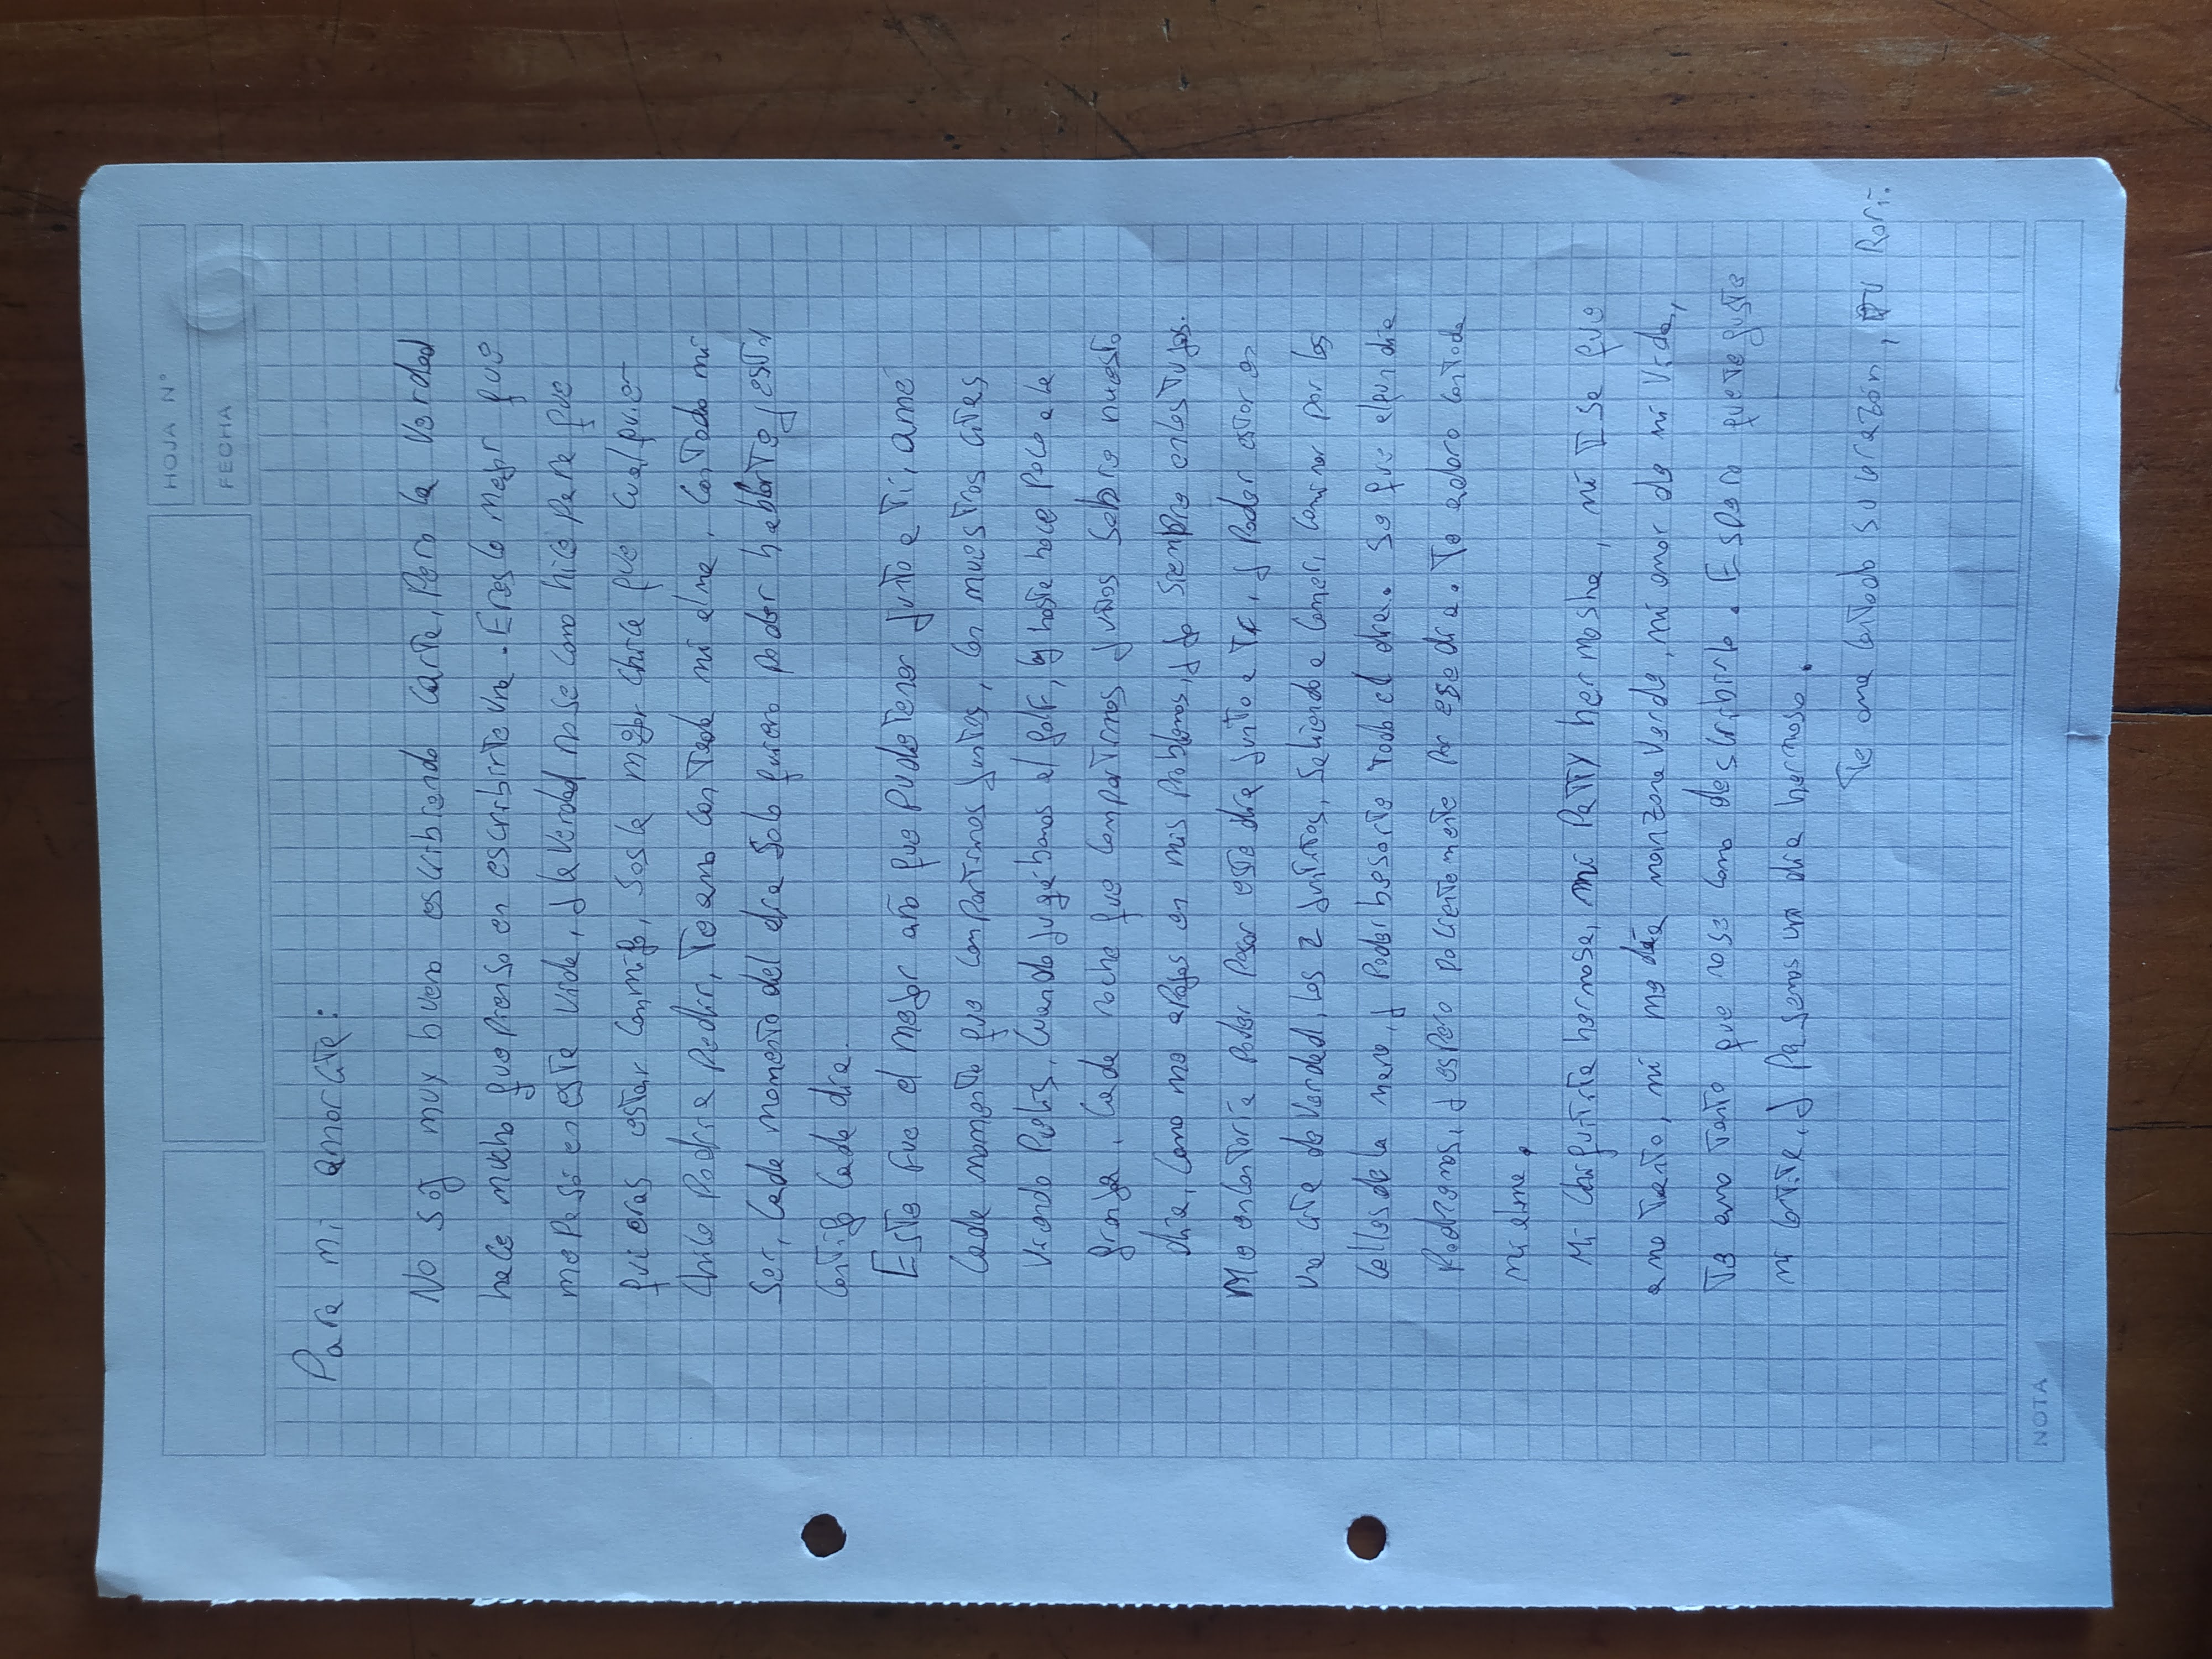 HOJA N°
FECHA
Para mi amorcita:
No soy muy bueno escribiendo carta, Pero la Verdad
hace mucho que pienso en escribirte una. Eres lo mejor que
me pasó en esta vida, y la verdad no se como hice para que
quieras estar conmigo, sos la mejor chica que cualquier
chico podria pedir, Te amo con toda mi alma, con todo mi
ser, cada momento del dia solo quiero poder hablarte y estar
contigo cada dia.
Este fue el mejor año que pude tener junto a ti, amé
cada momento que compartimos juntos, con nuestras citas,
viendo Pelis, cuando jugábamos el golf, y hasta hace poco a la
granja, cada noche que compartimos juntos sobre nuestro
dia, como me apoyas en mis problemas, y yo siempre en los tuyos.
Me encantaría poder pasar este dia junto a ti, y poder estar en
una cita de verdad, los 2 juntitos, saliendo a comer, caminar por las
calles de la mano, y poder besarte todo el dia. Se que algun dia
Podremos, y espero pacientemente por ese dia. Te adoro con toda
mi alma.
Mi chiquitita hermosa, mi Patty hermosha, mi T se que
amo tanto, mi media manzana verde, mi amor de mi vida,
Te amo tanto que no se como describirlo. Espero que te guste
mi cartita, y Pasemos un dia hermoso.
Te ama con todo su corazón, tu Rori.
NOTA